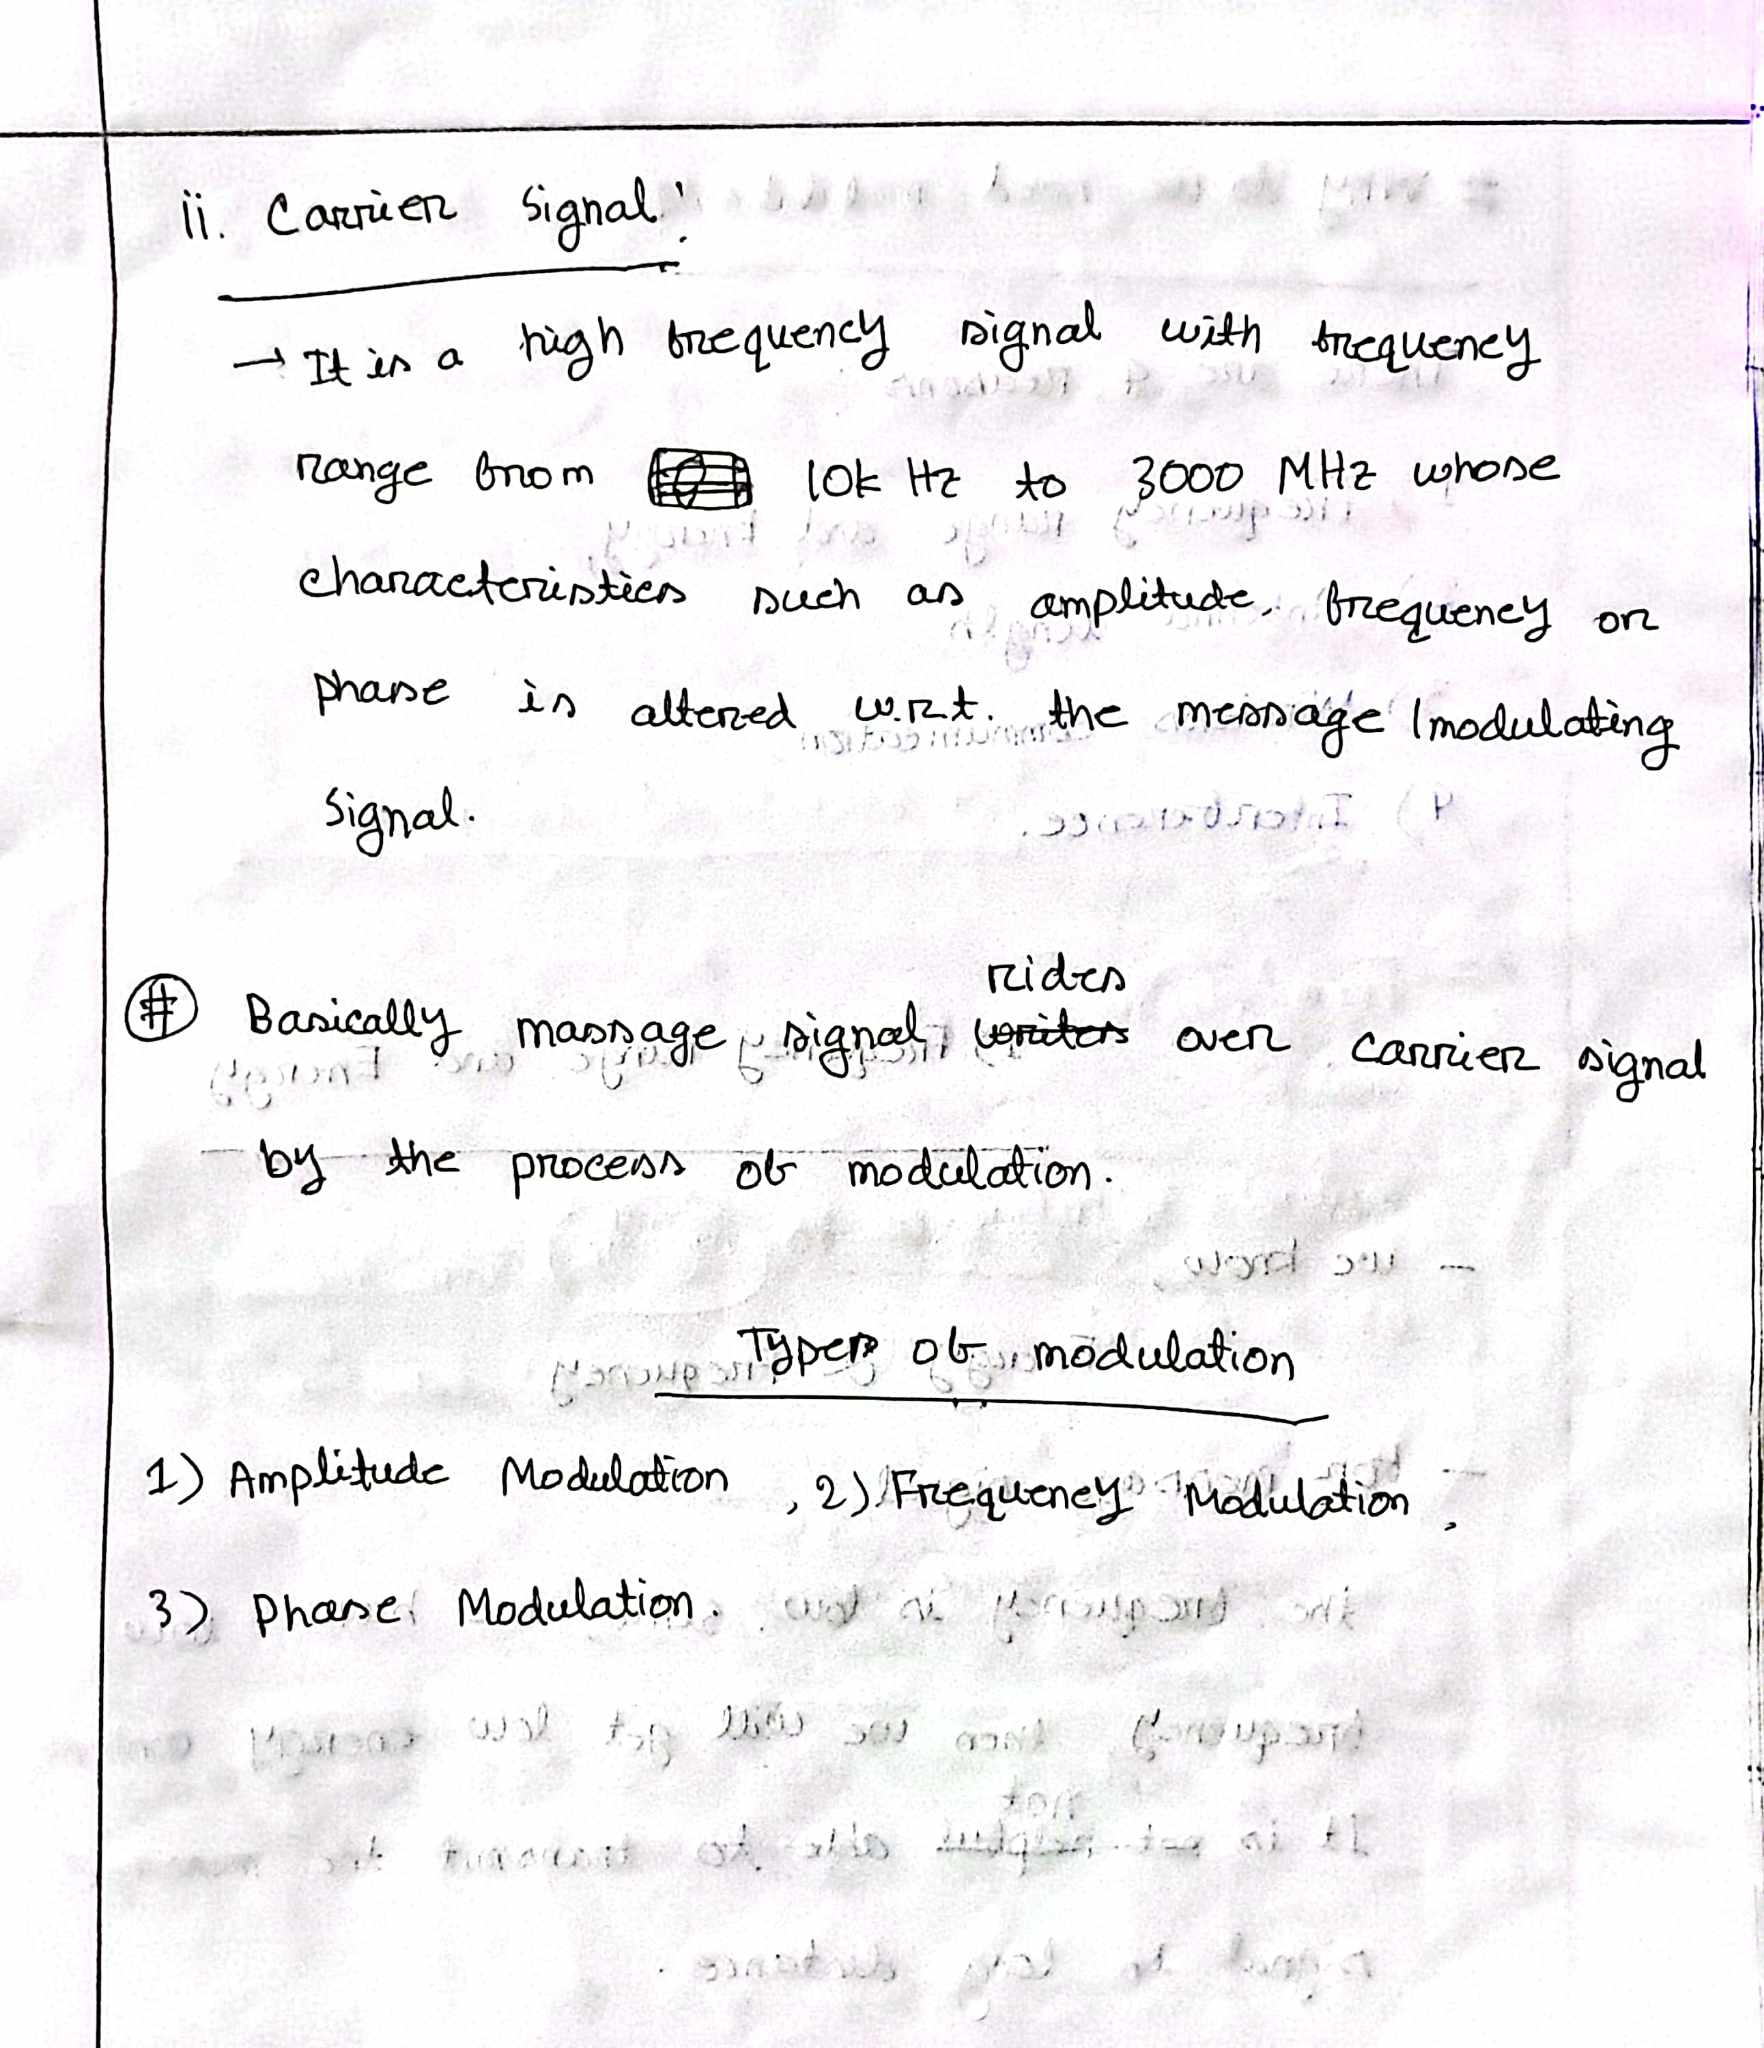 ii. Carrier Signal:
→ It is a high frequency signal with frequency
range from 10k Hz to 3000 MHz whose
characteristics such as amplitude, frequency or
phase is altered w.r.t. the message /modulating
Signal.
rides
# Basically massage signal writers over carrier signal
by the process of modulation.
Types of modulation
1) Amplitude Modulation , 2) Frequency Modulation ,
3) Phase Modulation.